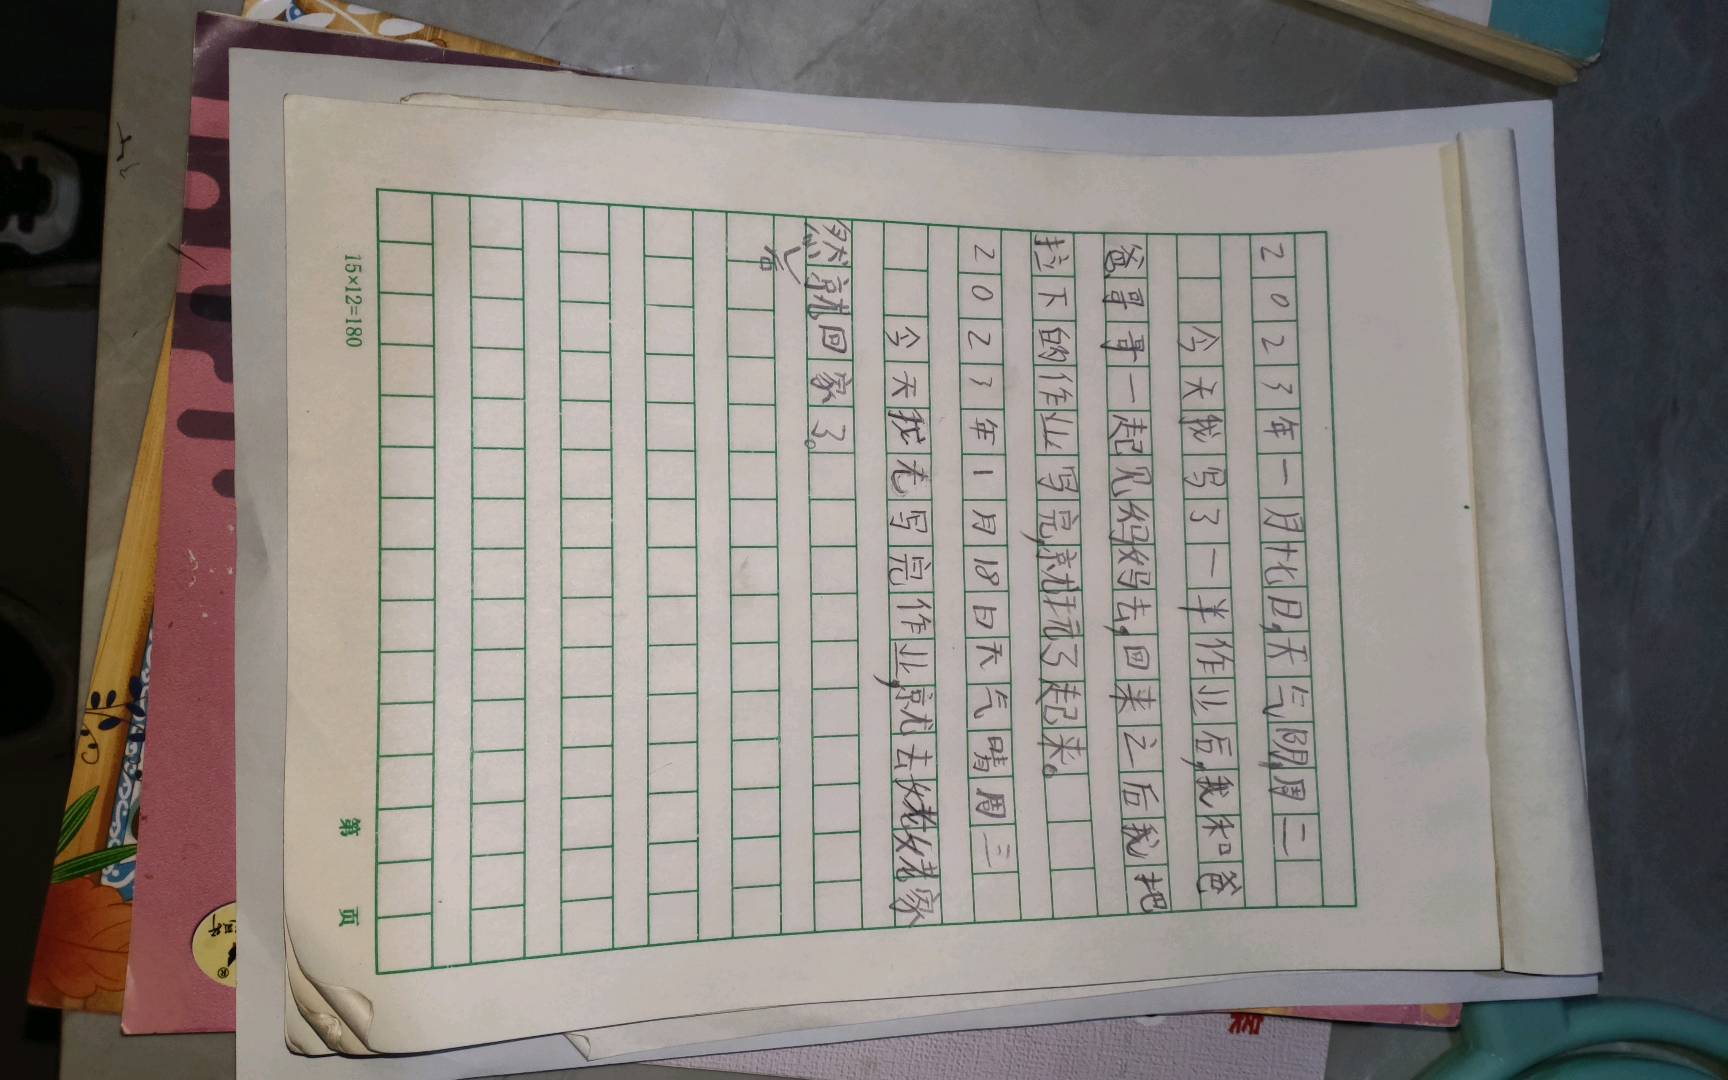 2023年一月十七日,天气阴,周二
今天我写了一半作业后,我和爸
爸哥哥一起见妈妈去,回来之后我把
拉下的作业写完,就玩了起来。
2023年1月18日天气晴周三
今天我先写完作业,就去姥姥家
然后就回家了。
15×12=180
第 页